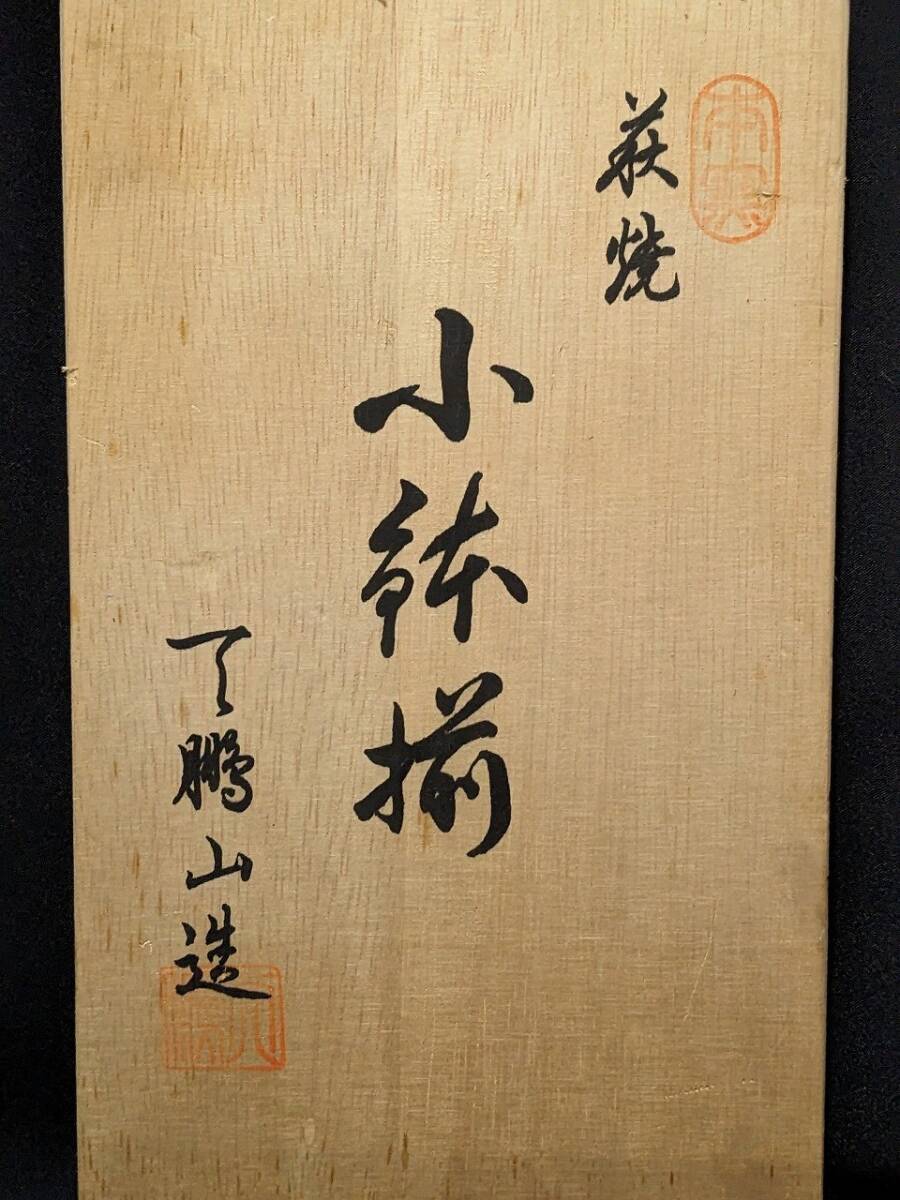 萩焼
小鉢揃
天鵬山造